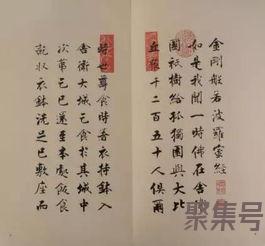 金剛般若波羅蜜經
如是我聞一時佛在舍衛
國祇樹給孤獨園與大比
丘眾千二百五十人俱爾
時世尊食時著衣持鉢入
舍衛大城乞食於其城中
次第乞已還至本處飯食
訖收衣鉢洗足已敷座而
聚集号